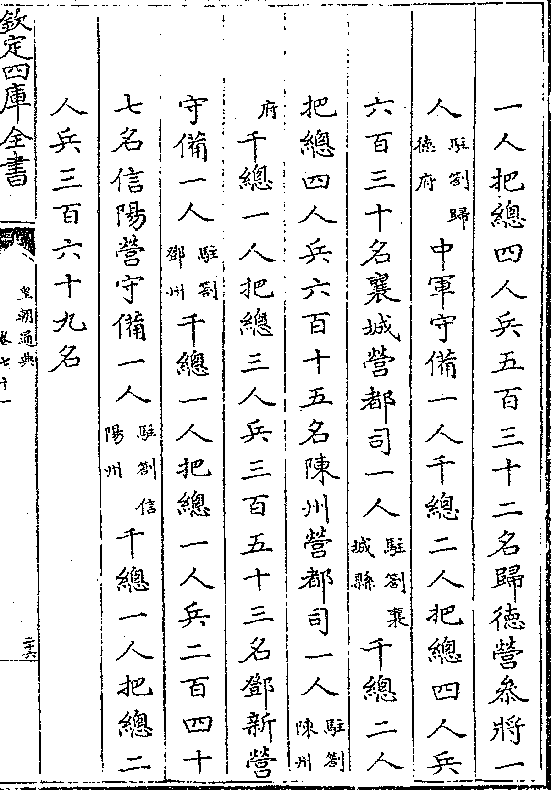 一人把總四人兵五百三十二名歸德營叅將一
人駐劄歸德府中軍守備一人千總二人把總四人兵
六百三十名襄城營都司一人駐劄襄城縣千總二人
把總四人兵六百十五名陳州營都司一人駐劄陳州
府千總一人把總三人兵三百五十三名鄧新營
守備一人駐劄鄧州千總一人把總一人兵二百四十
七名信陽營守備一人駐劄信陽州千總一人把總二
人兵三百六十九名
欽定四庫全書
皇朝通典
卷七十一
二十六